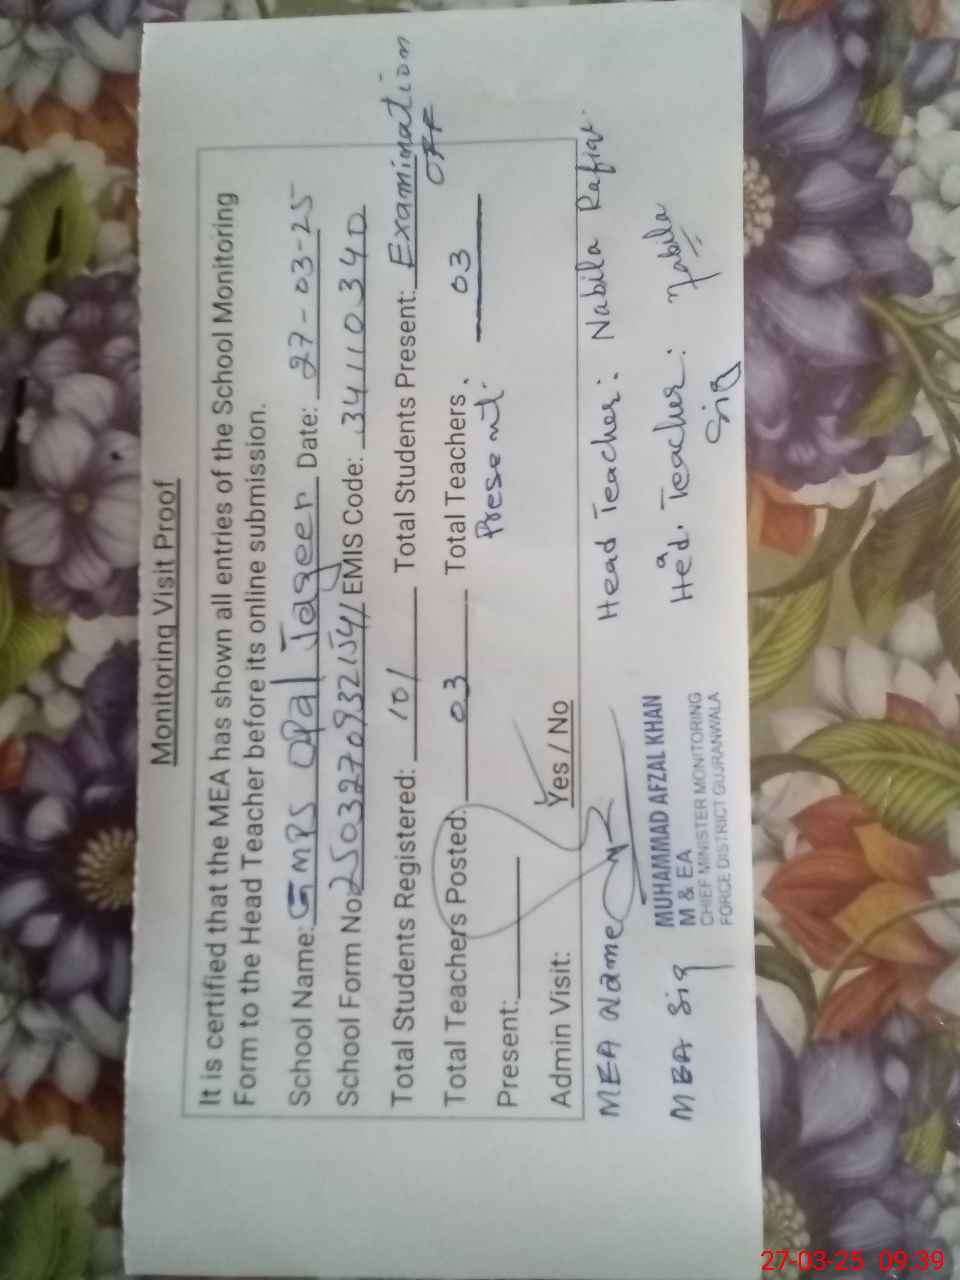 Monitoring Visit Proof
It is certified that the MEA has shown all entries of the School Monitoring
Form to the Head Teacher before its online submission.
School Name: GMPS Opal Jageer Date: 27-03-25
School Form No. 25032709321541 EMIS Code: 34110340
Total Students Registered: 101 Total Students Present: Examination
OFF
Total Teachers Posted: 03 Total Teachers. 03
Present.
Present:
Admin Visit: Yes / No
MEA Name Head Teacher: Nabila Rafiat.
MUHAMMAD AFZAL KHAN
M & EA
CHIEF MINISTER MONITORING
FORCE DISTRICT GUJRANWALA
MEA Sig Head. Teacher: Nabila
Sig
27-03-25 09:39